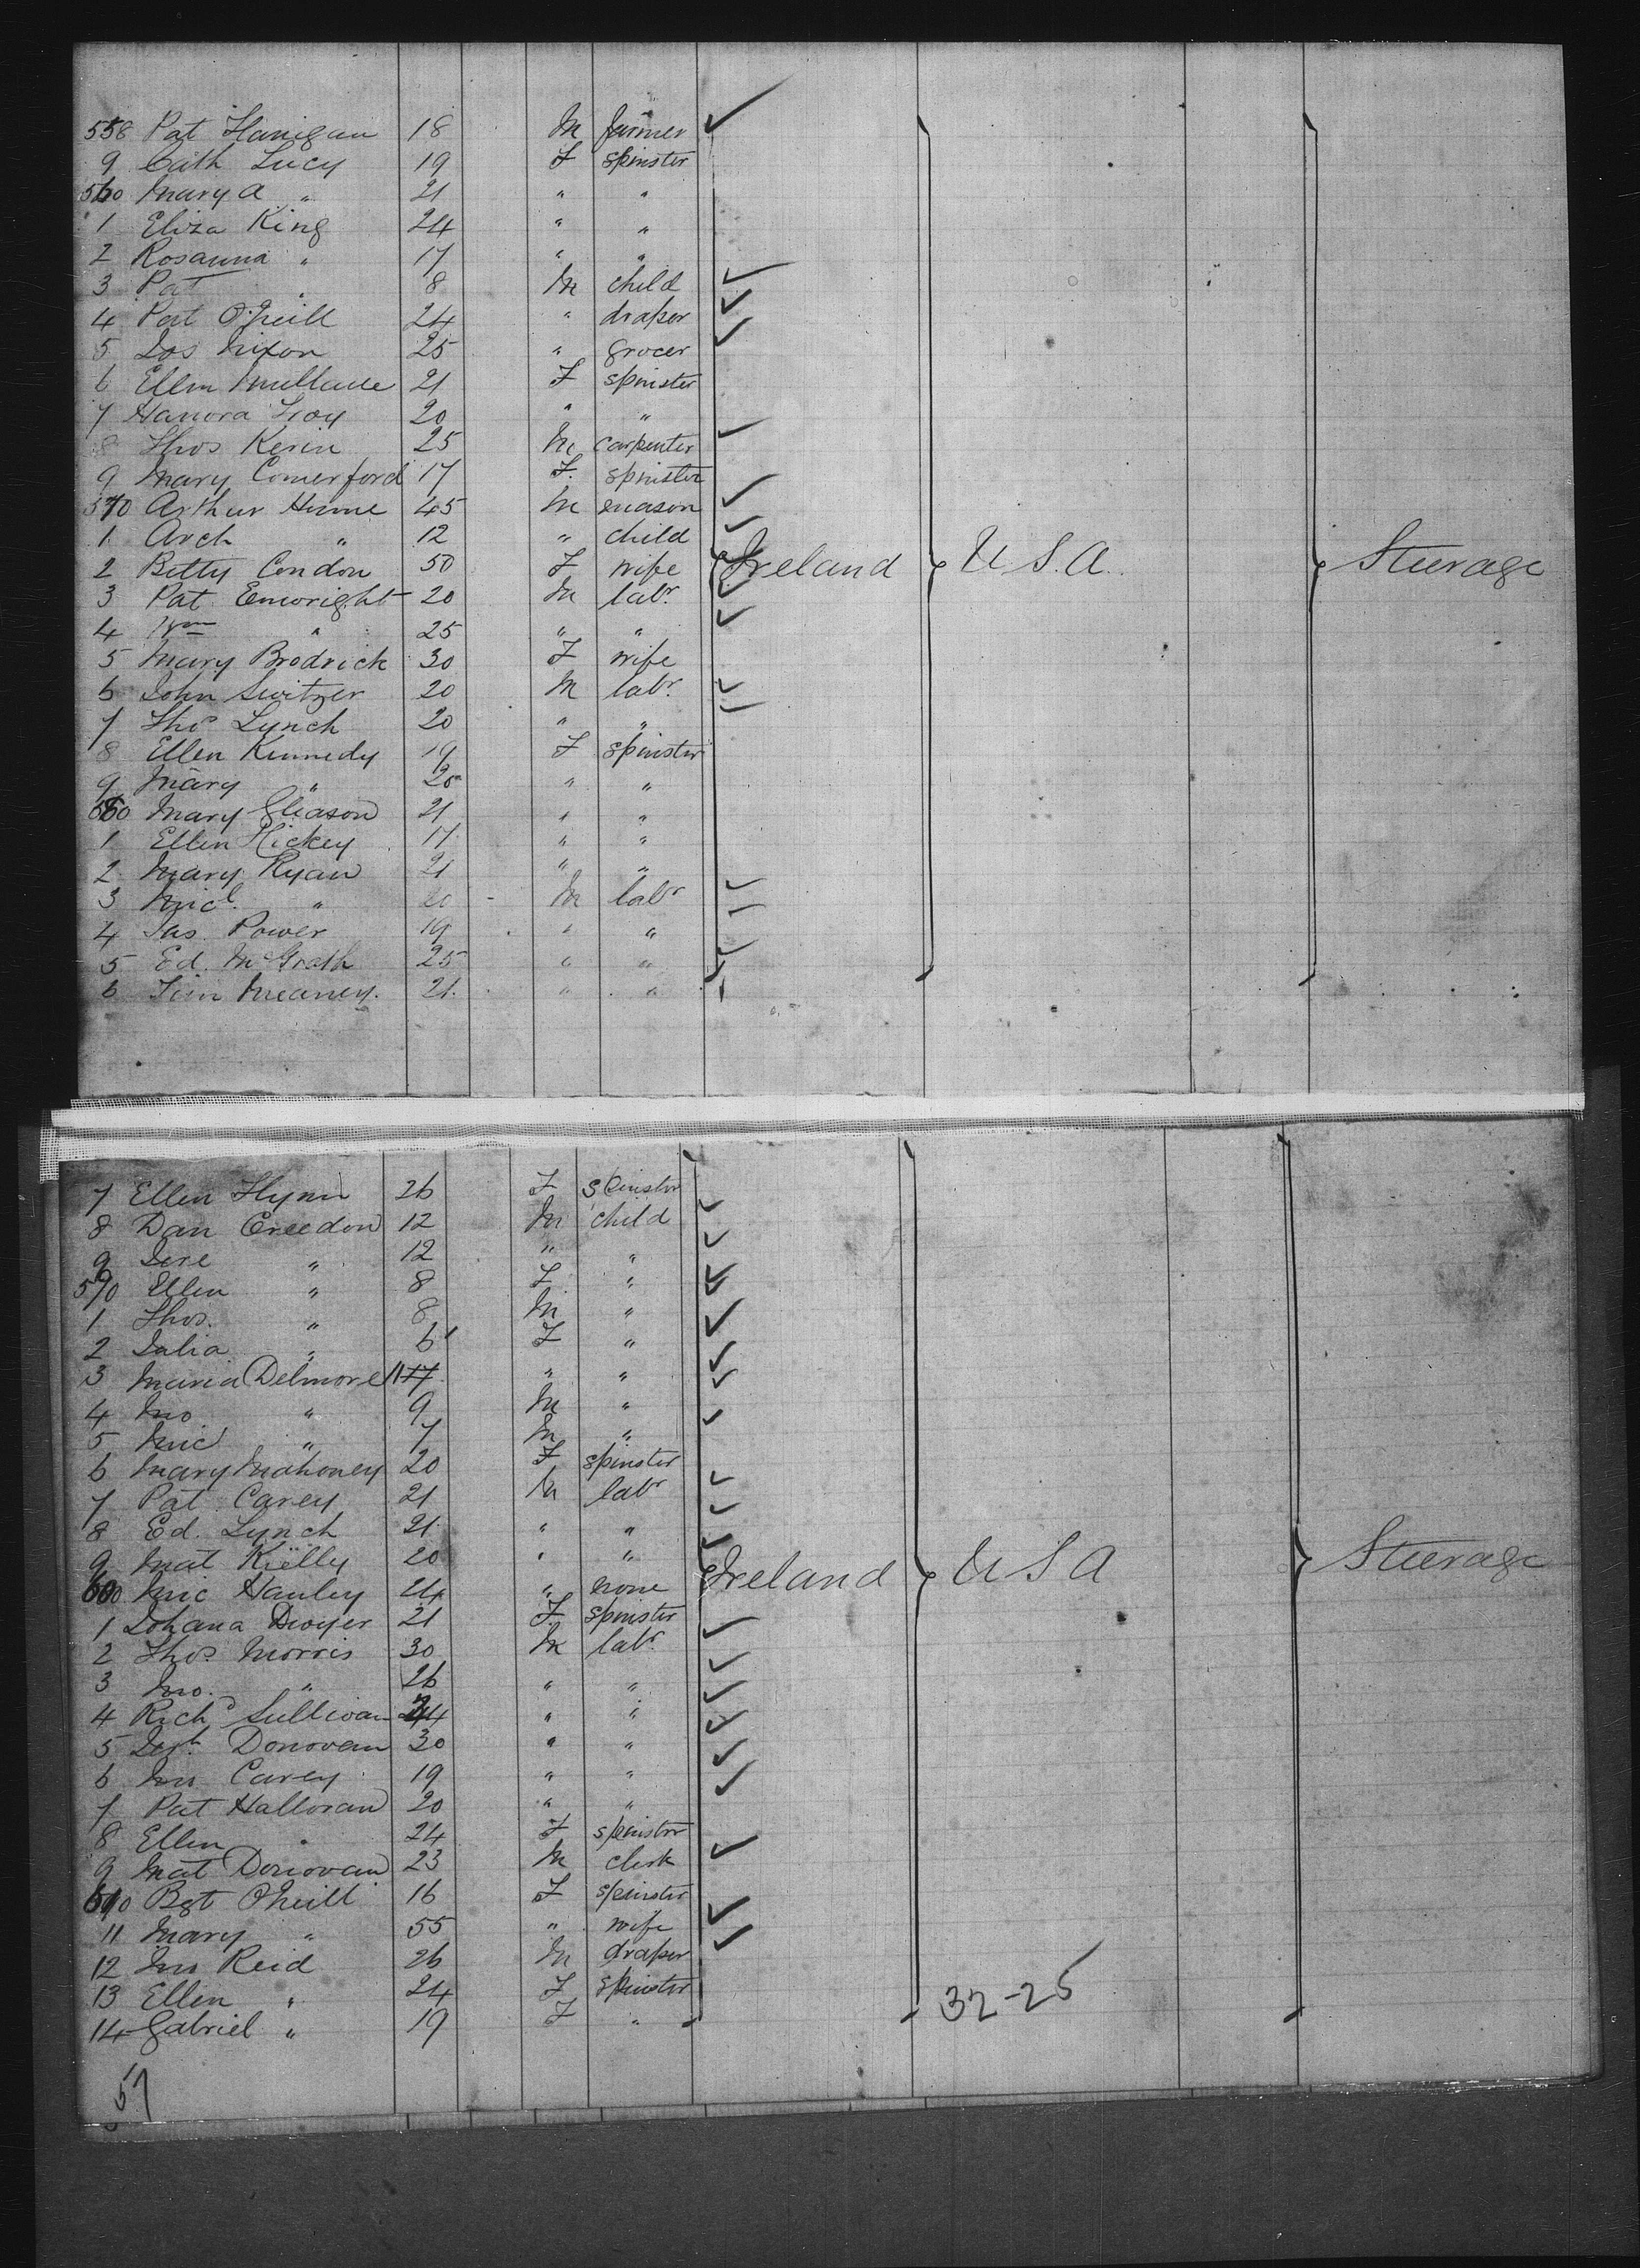 558 Pat Hanigan 18 M farmer
9 Cath Lucy 19 F spinster
560 Mary A " 21 " "
1 Eliza King 24 " "
2 Rosanna " 17 " "
3 Pat " 8 M child
4 Pat O'Neill 24 " draper
5 Jos Nixon 25 " grocer
6 Ellen Mullane 21 F spinster
7 Hanora Troy 20 " "
8 Thos Kerin 25 M carpenter
9 Mary Comerford 17 F. spinster
570 Arthur Hume 45 M mason
1 Arch " 12 " child
2 Betty Condon 50 F wife Ireland U.S.A. Steerage
3 Pat Enwright 20 M labr.
4 Wm " 25 " "
5 Mary Brodrick 30 F wife
6 John Switzer 20 M labr.
7 Thos Lynch 20 " "
8 Ellen Kennedy 19 F spinster
9 Mary " 20 " "
580 Mary Gleason 21 " "
1 Ellen Hickey 17 " "
2 Mary Ryan 21 " "
3 Micl. " 20 M labr
4 Jas. Power 19 " "
5 Ed. McGrath 25 " "
6 Tim Meaney. 21. " "
7 Ellen Flynn 26 F spinster
8 Dan Creedon 12 M child
9 Jere " 12 " "
590 Ellen " 8 F "
1 Thos. " 8 M "
2 Julia " 6 F "
3 Maria Delmore 11 " "
4 Jno " 9 M "
5 Mic " 7 M "
6 Mary Mahoney 20 F spinster
7 Pat Carey 21 M labr
8 Ed. Lynch 21. " "
9 Mat Kielly 20 " "
600 Mic Hanley 24 " none Ireland U S A Steerage
1 Johana Dwyer 21 F spinster
2 Thos Morris 30 M labr.
3 Jno. " 26 " "
4 Richd Sullivan 24 " "
5 Donovan 30 " "
6 Jno Carey 19 " "
7 Pat Halloran 20 " "
8 Ellen " 24 F spinster
9 Mat Donovan 23 M clerk
610 Bgt O'Neill 16 F spinster
11 Mary " 55 " wife
12 Jno Reid 26 M draper
13 Ellen " 24 F spinster
14 Gabriel " 19 F "
32-25
57